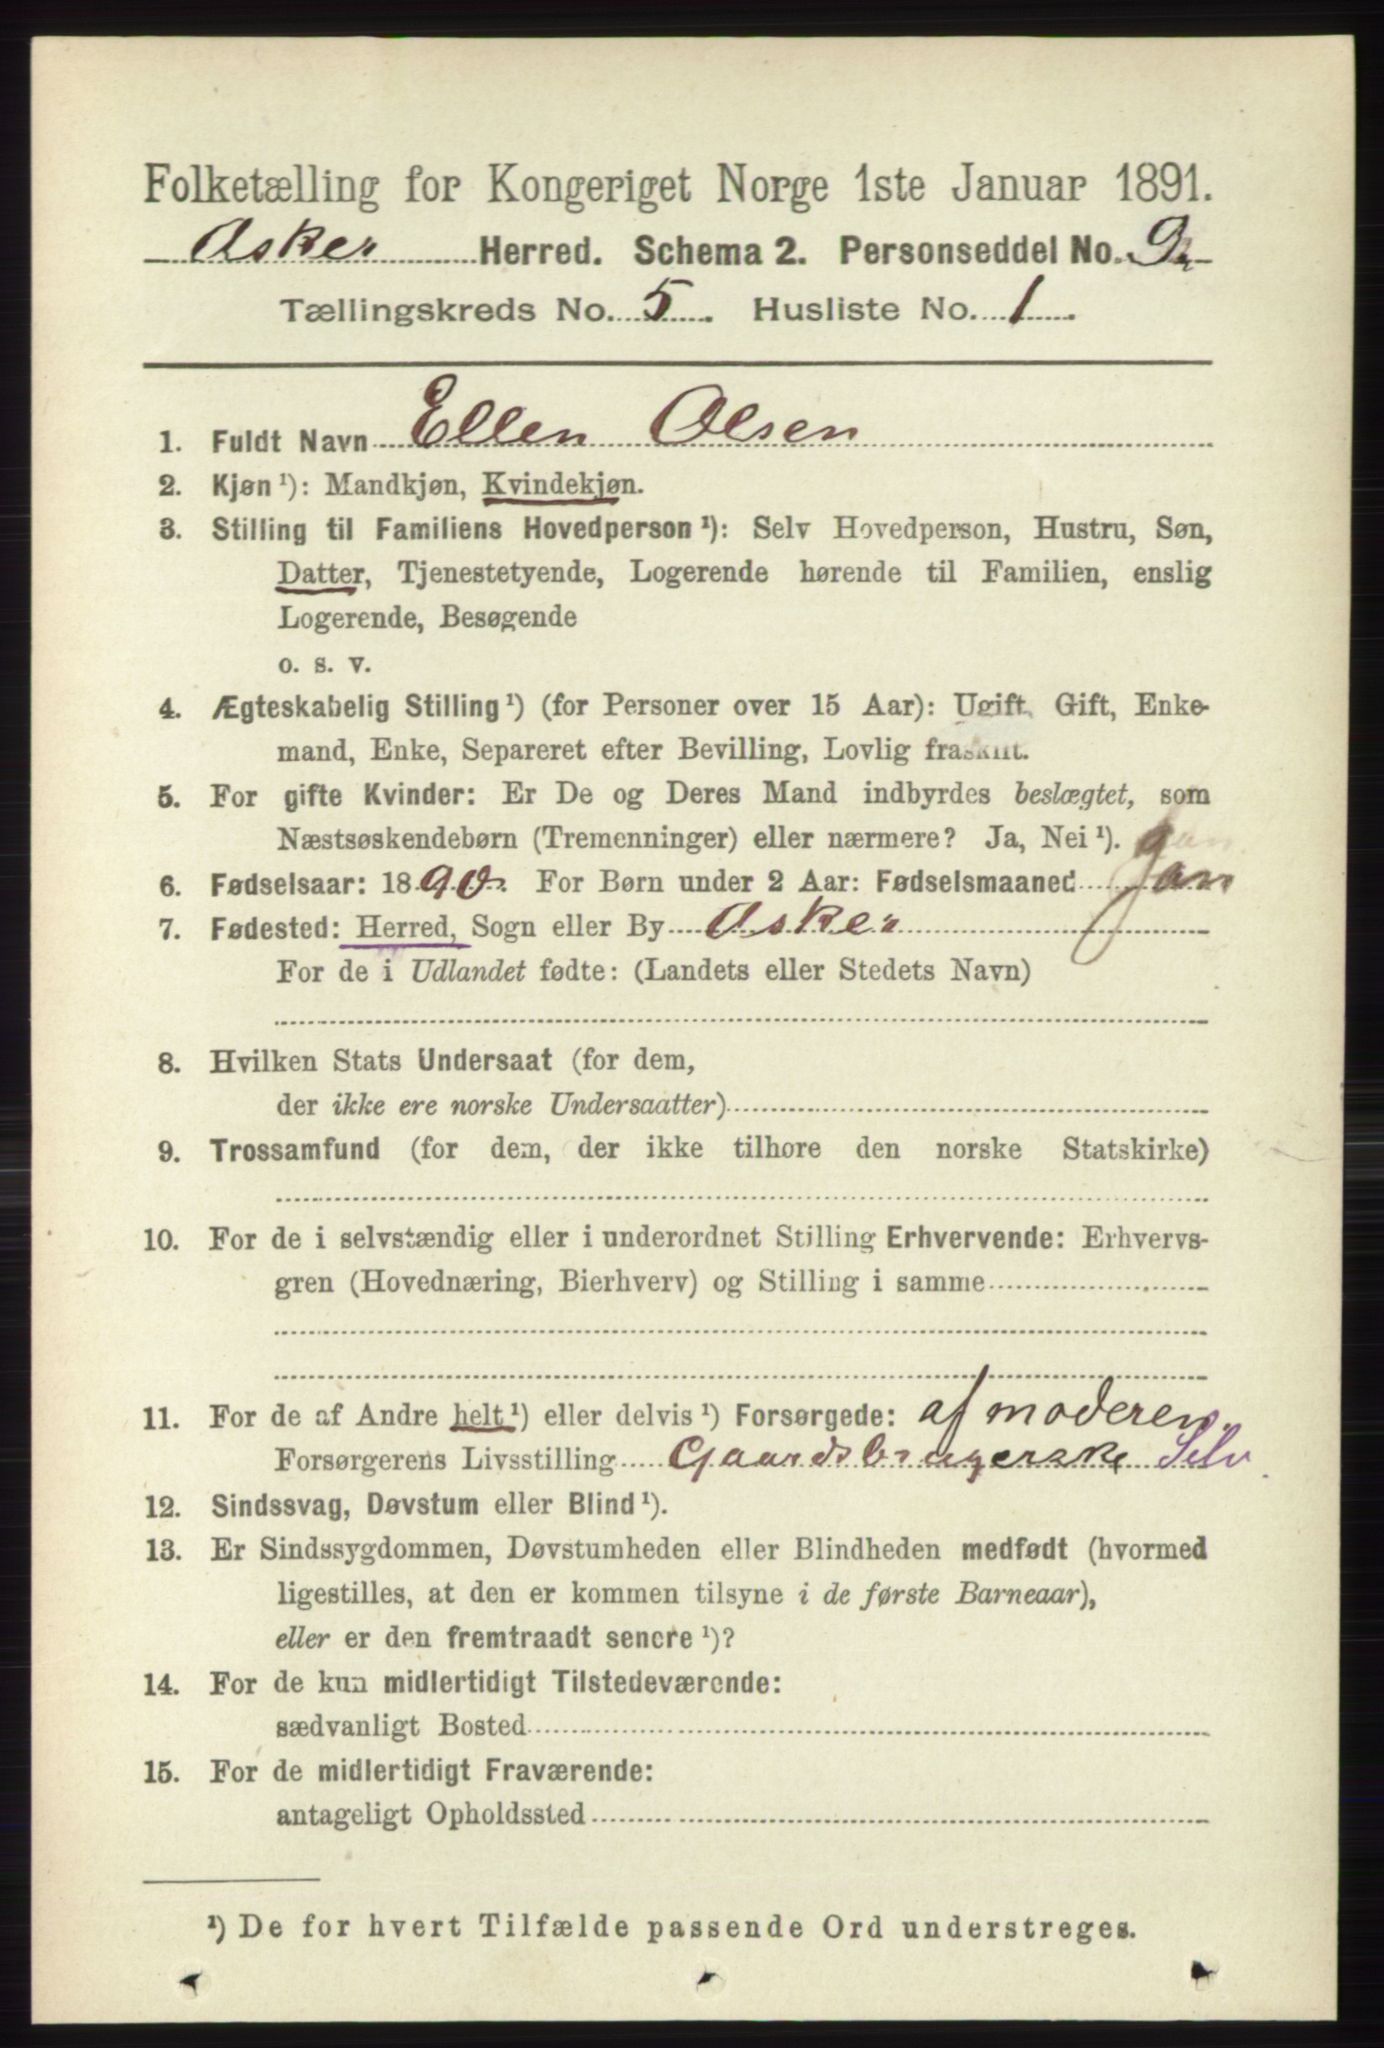 Folketælling for Kongeriget Norge 1ste Januar 1891.
Asker Herred. Schema 2. Personseddel No. 9
Tællingskreds No. 5. Husliste No. 1.
1. Fuldt Navn Ellen Olsen
2. Kjøn ¹): Mandkjøn, Kvindekjøn.
3. Stilling til Familiens Hovedperson ¹): Selv Hovedperson, Hustru, Søn,
Datter, Tjenestetyende, Logerende hørende til Familien, enslig
Logerende, Besøgende
o. s. v.
4. Ægteskabelig Stilling ¹) (for Personer over 15 Aar): Ugift, Gift, Enke-
mand, Enke, Separeret efter Bevilling, Lovlig fraskilt.
5. For gifte Kvinder: Er De og Deres Mand indbyrdes beslægtet, som
Næstsøskendebørn (Tremenninger) eller nærmere? Ja, Nei ¹).
6. Fødselsaar: 1890. For Børn under 2 Aar: Fødselsmaaned Jan
7. Fødested: Herred, Sogn eller By Asker
For de i Udlandet fødte: (Landets eller Stedets Navn)
8. Hvilken Stats Undersaat (for dem,
der ikke ere norske Undersaatter)
9. Trossamfund (for dem, der ikke tilhøre den norske Statskirke)
10. For de i selvstændig eller i underordnet Stilling Erhvervende: Erhvervs-
gren (Hovednæring, Bierhverv) og Stilling i samme
11. For de af Andre helt ¹) eller delvis ¹) Forsørgede: af moderen.
Forsørgerens Livsstilling Gaardsbrugerske Selv
12. Sindssvag, Døvstum eller Blind ¹).
13. Er Sindssygdommen, Døvstumheden eller Blindheden medfødt (hvormed
ligestilles, at den er kommen tilsyne i de første Barneaar),
eller er den fremtraadt senere ¹)?
14. For de kun midlertidigt Tilstedeværende:
sædvanligt Bosted
15. For de midlertidigt Fraværende:
antageligt Opholdssted
¹) De for hvert Tilfælde passende Ord understreges.